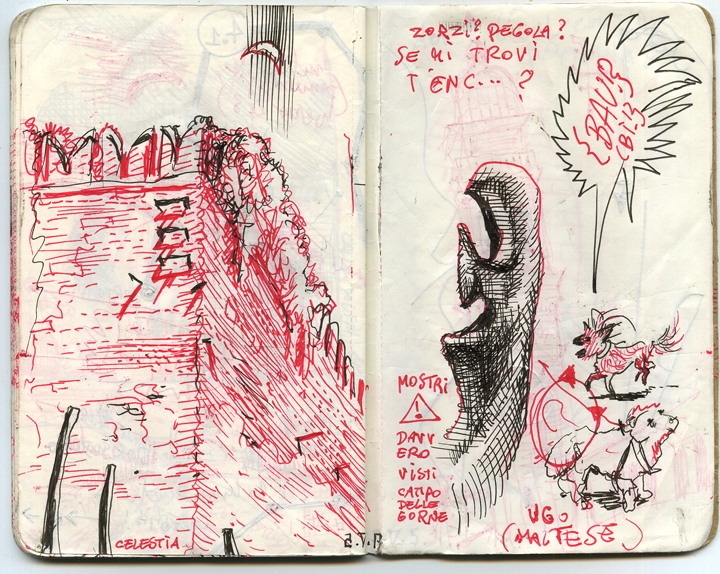 CELESTIA
ZORZI? PEGOLA?
SE MI TROVI
T'ENC... ?
BAU!
MOSTRI
!
DAVV
ERO
VISTI
CAMPO
DELLE
GORNE
UGO
(MALTESE)